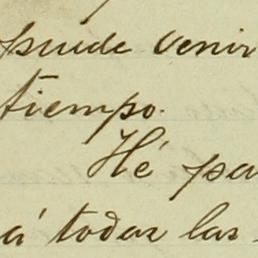 puede venir
tiempo.
Hé pa
á todas las